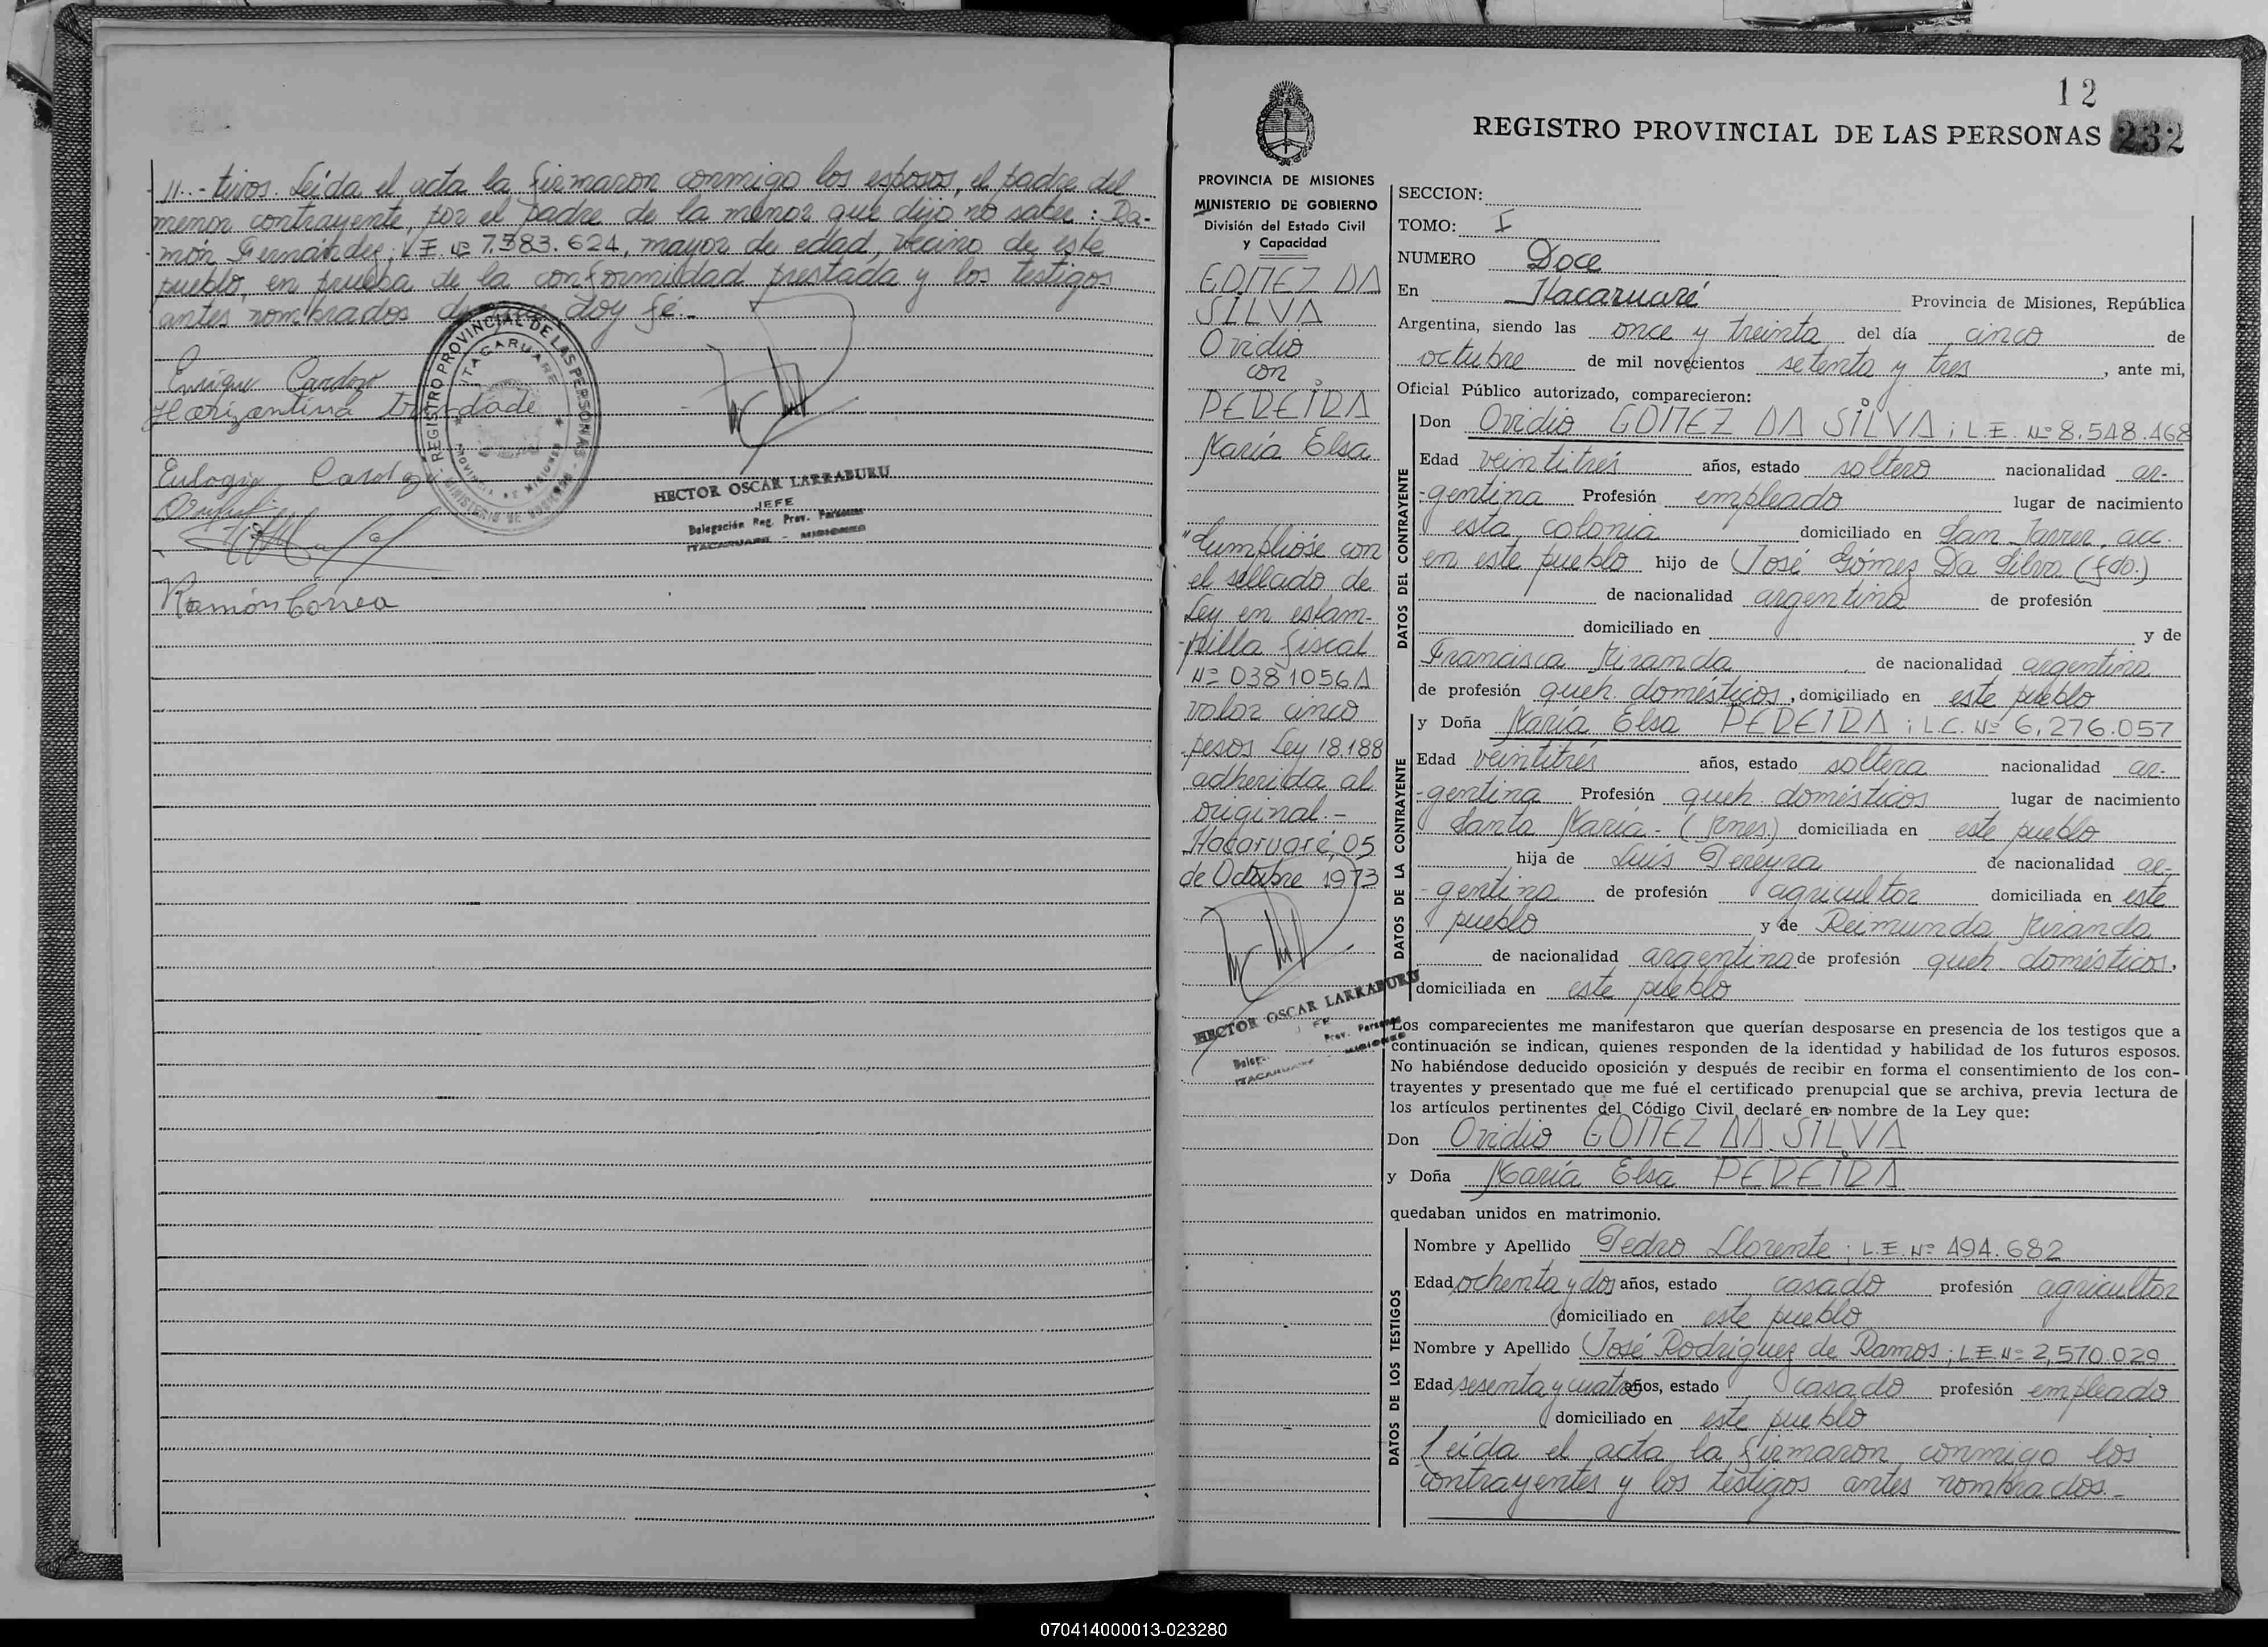 11..- tivos. Leída el acta la firmaron conmigo los esposos, el padre del
menor contrayente, por el padre de la menor que dijo no saber: Ra-
món Fernández; L.E. Nº 7.383.624, mayor de edad, vecino de este
pueblo, en prueba de la conformidad prestada y los testigos
antes nombrados de que doy fé.-
REGISTRO PROVINCIAL DE LAS PERSONAS
ITACARUARE
PROVINCIA DE MISIONES
MINISTERIO DE GOBIERNO
Enrique Cardozo
Horizantina
Eulogio Cardozo
HECTOR OSCAR LARRABURU
JEFE
Delegación Reg. Prov. Personas
ITACARUARE - MISIONES
Ramón Correa
12
REGISTRO PROVINCIAL DE LAS PERSONAS 232
PROVINCIA DE MISIONES
MINISTERIO DE GOBIERNO
División del Estado Civil
y Capacidad
GOMEZ DA
SILVA
Ovidio
con
PEREIRA
María Elsa
"Cumplióse con
el sellado de
Ley en estam-
-pilla fiscal
Nº 0381056A
valor cinco
pesos Ley 18.188
adherida al
original.-
Itacaruaré, 05
de Octubre 1973
HECTOR OSCAR LARRABURU
JEFE
Deleg. Prov. Personas
ITACARUARE MISIONES
SECCION:
TOMO: I
NUMERO Doce
En Itacaruaré Provincia de Misiones, República
Argentina, siendo las once y treinta del día cinco de
octubre de mil novecientos setenta y tres, ante mi,
Oficial Público autorizado, comparecieron:
DATOS DEL CONTRAYENTE
Don Ovidio GOMEZ DA SILVA; L.E. Nº 8.548.468
Edad veintitrés años, estado soltero nacionalidad ar-
-gentina Profesión empleado lugar de nacimiento
esta colonia domiciliado en San Javier, acc.
en este pueblo hijo de José Gómez Da Silva (fdo.)
de nacionalidad argentina de profesión
domiciliado en y de
Francisca Miranda de nacionalidad argentina
de profesión queh. domésticos, domiciliado en este pueblo
DATOS DE LA CONTRAYENTE
y Doña María Elsa PEREIRA; L.C. Nº 6.276.057
Edad veintitrés años, estado soltera nacionalidad ar-
-gentina Profesión queh. domésticos lugar de nacimiento
Santa María - (Mnes.) domiciliada en este pueblo
hija de Luis Pereyra de nacionalidad ar-
-gentina de profesión agricultor domiciliada en este
pueblo y de Reimunda Miranda
de nacionalidad argentina de profesión queh. domésticos,
domiciliada en este pueblo
Los comparecientes me manifestaron que querían desposarse en presencia de los testigos que a
continuación se indican, quienes responden de la identidad y habilidad de los futuros esposos.
No habiéndose deducido oposición y después de recibir en forma el consentimiento de los con-
trayentes y presentado que me fué el certificado prenupcial que se archiva, previa lectura de
los artículos pertinentes del Código Civil declaré en nombre de la Ley que:
Don Ovidio GOMEZ DA SILVA
y Doña María Elsa PEREIRA
quedaban unidos en matrimonio.
DATOS DE LOS TESTIGOS
Nombre y Apellido Pedro Llorente; L.E. Nº 494.682
Edad ochenta y dos años, estado casado profesión agricultor
domiciliado en este pueblo
Nombre y Apellido José Rodríguez de Ramos; L.E. Nº 2.570.029
Edad sesenta y cuatro años, estado casado profesión empleado
domiciliado en este pueblo
Leída el acta la firmaron conmigo los
contrayentes y los testigos antes nombrados.-
070414000013-023280